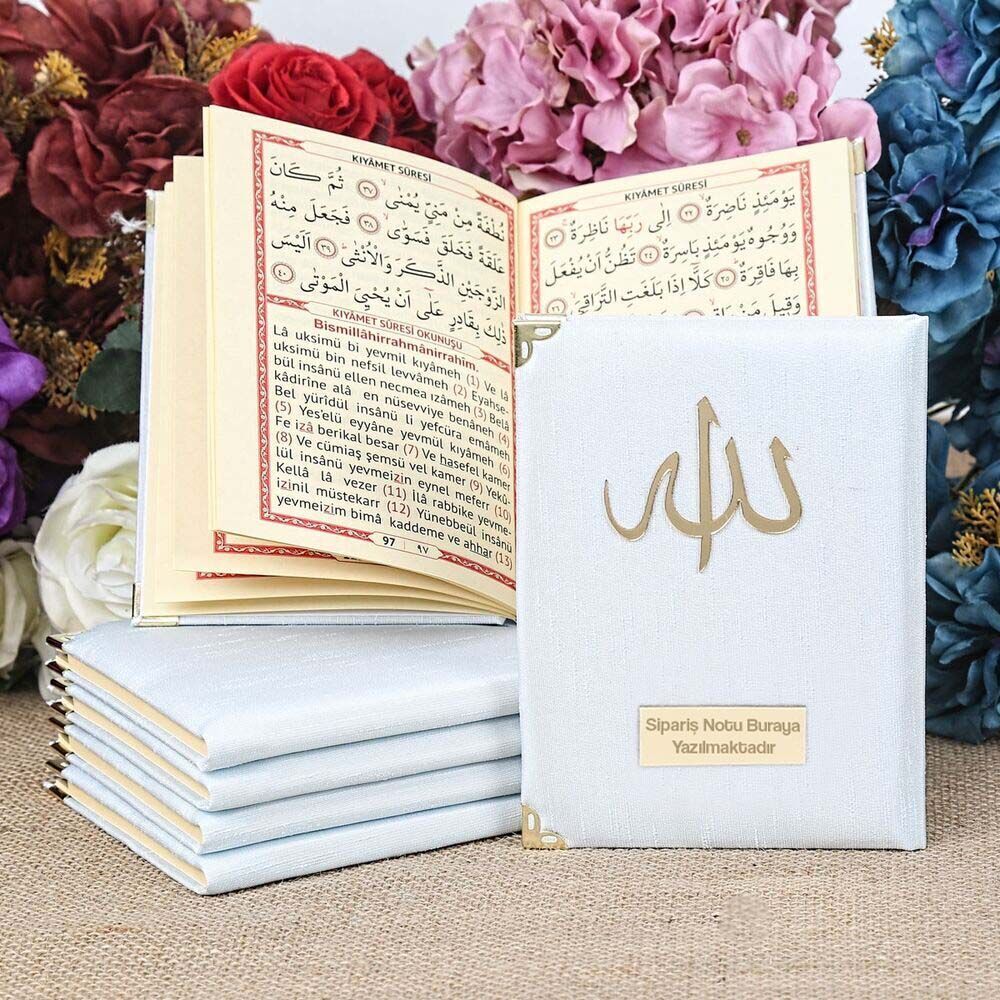 KIYÂMET SÛRESİ
ثُمَّ كَانَ
نُطْفَةً مِنْ مَنِيٍّ يُمْنٰىۙ ﴿٣٧﴾
عَلَقَةً فَخَلَقَ فَسَوّٰىۙ ﴿٣٨﴾ فَجَعَلَ مِنْهُ
الزَّوْجَيْنِ الذَّكَرَ وَالْاُنْثٰىۜ ﴿٣٩﴾ اَلَيْسَ
ذٰلِكَ بِقَادِرٍ عَلٰٓى اَنْ يُحْيِيَ الْمَوْتٰى ﴿٤٠﴾
KIYÂMET SÛRESİ OKUNUŞU
Bismillâhirrahmânirrahîm.
Lâ uksimü bi yevmil kıyâmeh (1) Ve lâ
uksimü bin nefsil levvâmeh (2) Eyahse-
bül insânü ellen necmea ızâmeh (3) Belâ
kâdirîne alâ en nüsevviye benâneh (4)
Bel yürîdül insânü li yefcüra emâmeh
(5) Yes'elü eyyâne yevmül kıyâmeh (6)
Fe izâ berikal besar (7) Ve hasefel kamer
(8) Ve cümiaş şemsü vel kamer (9) Yekû-
lül insânü yevmeizin eynel meferr (10)
Kellâ lâ vezer (11) İlâ rabbike yevme-
izinil müstekarr (12) Yünebbeül insânü
yevmeizim bimâ kaddeme ve ahhar (13)
97 ٩٧
KIYÂMET SÛRESİ
يَوْمَئِذٍ نَاضِرَةٌۙ ﴿٢٢﴾ اِلٰى رَبِّهَا نَاظِرَةٌۚ ﴿٢٣﴾
وَوُجُوهٌ يَوْمَئِذٍ بَاسِرَةٌۙ ﴿٢٤﴾ تَظُنُّ اَنْ يُفْعَلَ
بِهَا فَاقِرَةٌۜ ﴿٢٥﴾ كَلَّٓا اِذَا بَلَغَتِ التَّرَاقِيَۙ ﴿٢٦﴾
وَقِيلَ مَنْ
الله
Sipariş Notu Buraya
Yazılmaktadır